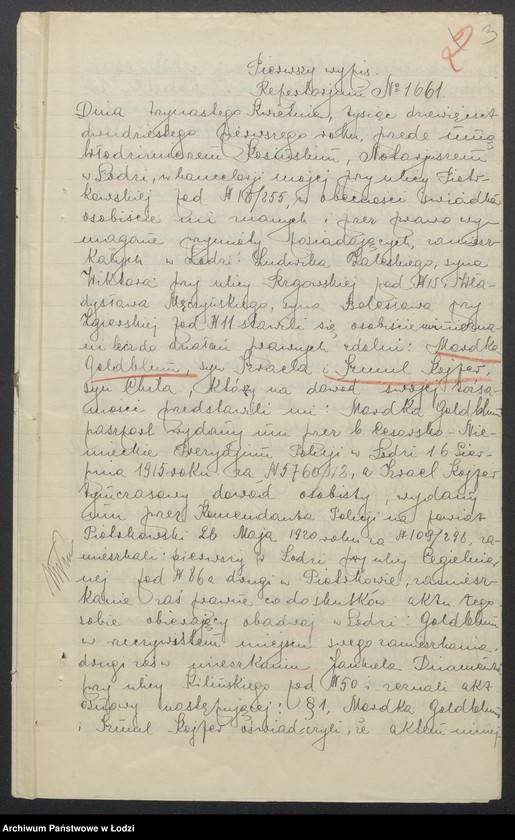 2 3
Pierwszy wypis.
Repertorjum № 1661
Dnia trzynastego Kwietnia, tysiąc dziewięćset
dwudziestego pierwszego roku, przede mną
Włodzimierzem Kosińskim, Notarjuszem
w Łodzi, w kancelarji mojej przy ulicy Piotr-
kowskiej pod № /255, w obecności świadków
osobiście mi znanych i przez prawo wy-
magane przymioty posiadających, zamiesz-
kałych w Łodzi: Ludwika Zaleskiego, syna
Wiktora przy ulicy Rzgowskiej pod № 15 i Wła-
dysława Męczyńskiego, syna Bolesława przy
Zgierskiej pod № 11 stawili się osobiście nieznani
mi lecz do działań prawnych zdolni: Mordka
Goldblum, syn Izraela i Szmul Kojfer,
syn Chila, którzy na dowód swojej tożsa-
mości przedstawili mi: Mordka Goldblum
paszport wydany mu przez b. Cesarsko-Nie-
mieckie Prezydjum Policji w Łodzi 16 Sier-
pnia 1915 roku za № 5760/12, a Izrael Kojfer
tymczasowy dowód osobisty, wydany
mu przez Komendanta Policji na powiat
Piotrkowski 26 Maja 1920 roku za № 109/298, za-
mieszkali: pierwszy w Łodzi przy ulicy Cegielnia-
nej pod № 86 a drugi w Piotrkowie, zamiesz-
kanie zaś prawne co do skutków aktu tego
sobie obierający obadwaj w Łodzi: Goldblum
w rzeczywistem miejscu swego zamieszkania,
drugi zaś w mieszkaniu Jankela Diamenta
przy ulicy Kilińskiego pod № 50 i zeznali akt
osnowy następującej: § 1, Mordka Goldblum
i Szmul Kojfer oświadczyli, że aktem niniej-
Archiwum Państwowe w Łodzi